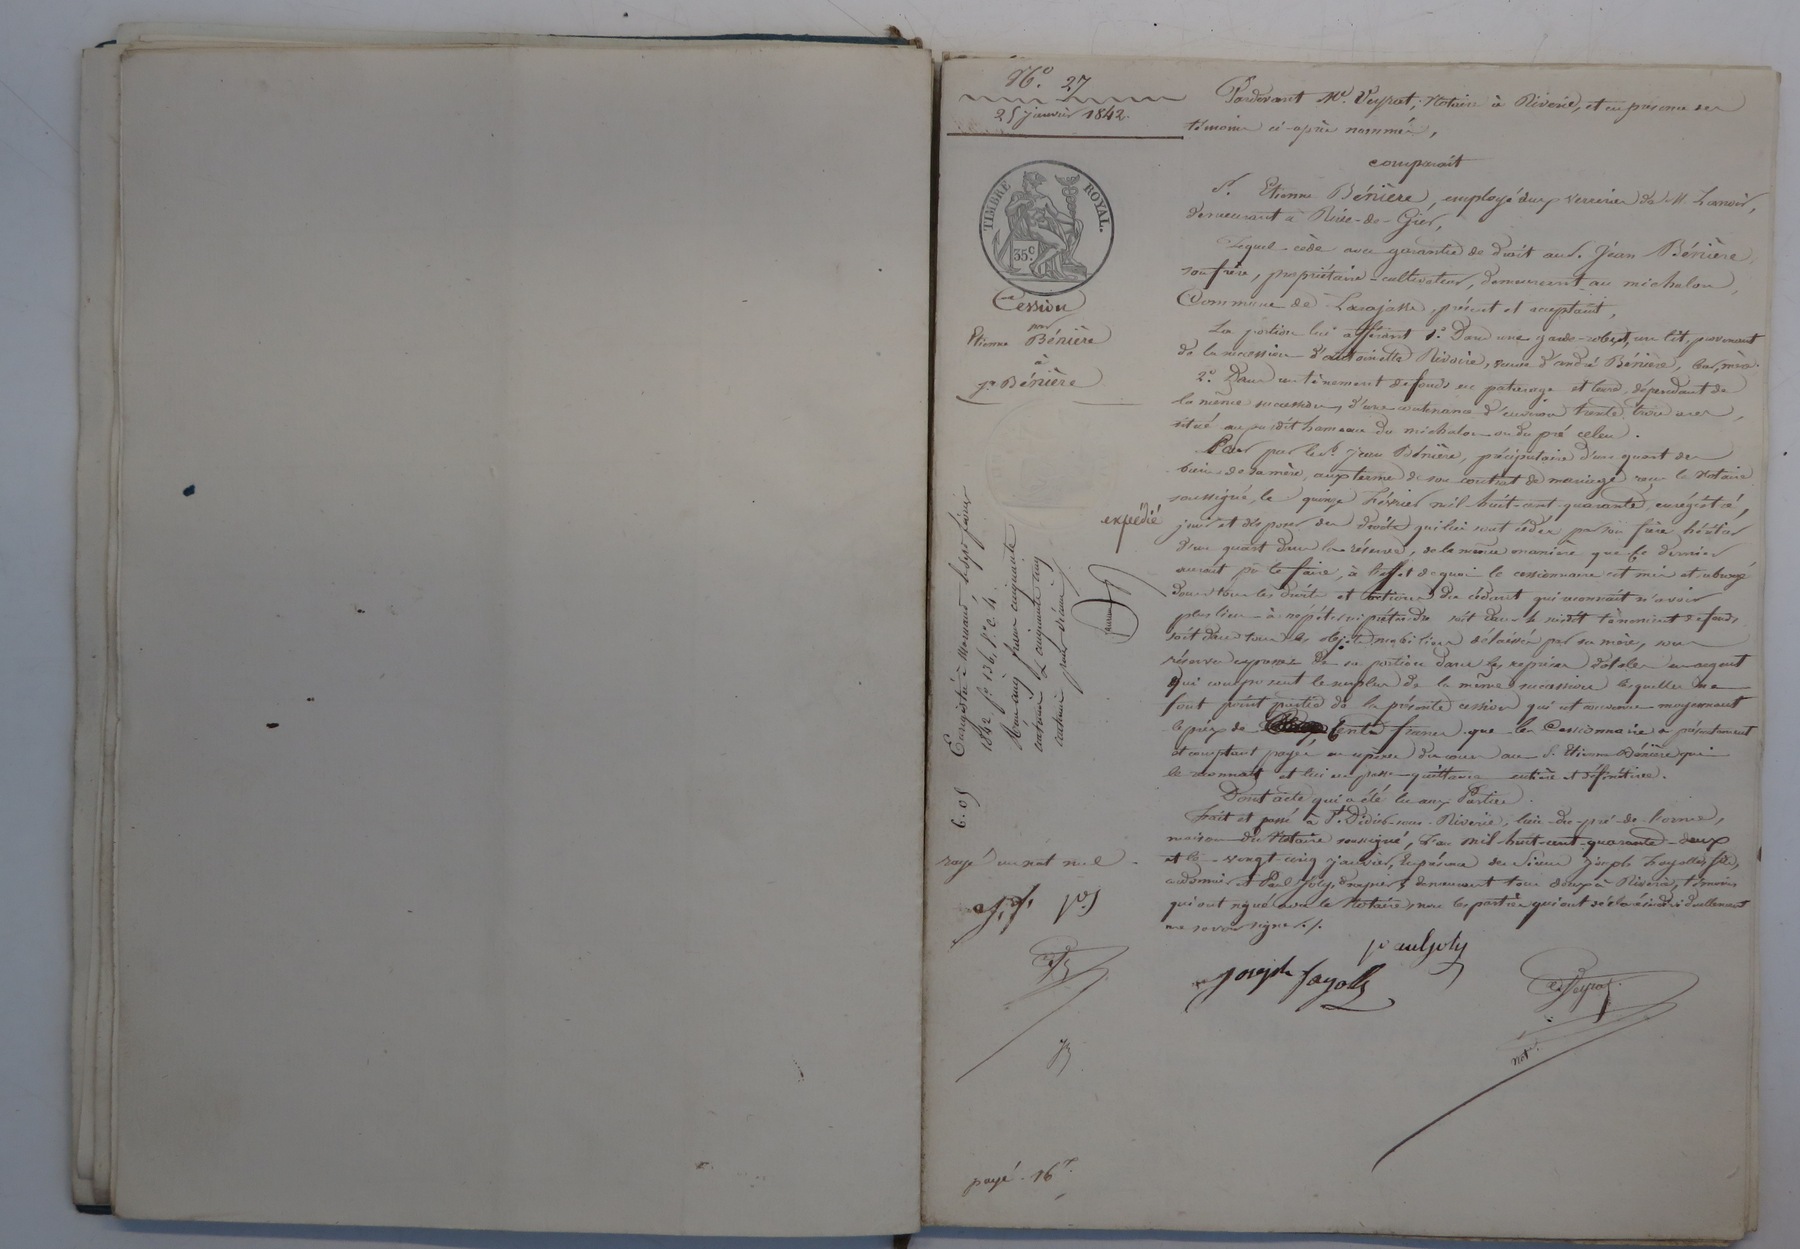 N.º 27
25 janvier 1842.
TIMBRE ROYAL.
35 c.
Cession
par
Etienne Bénière
à
Jn Bénière
expédié
Enregistré à Mornant le sept février
1842 fº 136, rº c. 4.
Reçu cinq francs cinquante
centimes et cinquante cinq
centimes pour décime
6.05
rayé un mot nul
J.f. p.J
payé 16 f
Pardevant Me. Veyrat, Notaire à Riverie, et en présence des
témoins ci-après nommés,
comparait
Sr. Etienne Bénière, employé aux verreries de M.
demeurant à Rive-de-Gier,
Lequel cède avec garantie de droit au S. Jean Bénière,
son frère, propriétaire-cultivateur, demeurant au michalon,
Commune de Larajasse, présent et acceptant,
La portion lui afférant 1º. Dans une garde-robe, et un lit, provenant
de la succession d'antoinette Rivoire, veuve d'andré Bénière, leur mère.
2º. Dans un tènement de fonds en paturage et terre, dépendant de
la même succession, d'une contenance d'environ trente trois ares,
situé au susdit hameau du michalon ou du pré
Pour par le Sr. Jean Bénière, préciputaire d'un quart des
biens de sa mère, aux termes de son contrat de mariage reçu le Notaire
soussigné, le quinze février mil huit-cent-quarante, enregistré,
jouir et disposer des droits qui lui sont cédés par son frère héritier
d'un quart dans la réserve, de la même manière que ce dernier
aurait pu le faire, à l'effet de quoi le cessionnaire est mis et subrogé
dans tous les droits et actions du cédant qui reconnait n'avoir
plus lieu à répéter ni prétendre soit dans le susdit tènement de fonds
soit dans tous les objets mobiliers délaissés par sa mère, sous
réserve expresse de sa portion dans les reprises dotales en argent
qui composent le surplus de la même succession lesquelles ne
font point partie de la présente cession qui est convenue moyennant
le prix de cent francs que le Cessionnaire a présentement
et comptant payé en espèces de cours au S. Etienne Bénière qui
le reconnait et lui en passe quittance entière et définitive.
Dont acte qui a été lu aux Parties.
Fait et passé à St. Didier-sous-Riverie, lieu du pré-de-l'orme,
maison du Notaire soussigné, l'an mil-huit-cent-quarante-deux
et le vingt-cinq janvier, En présence des Sieurs Joseph Fayolle, fils,
cordonnier et Paul Joly, drapier, demeurant tous deux à Riverie, témoins
qui ont signé avec le Notaire, non les parties qui ont déclaré individuellement
ne savoir signer ./.
paul Joly
joseph fayolle
Veyrat
notre